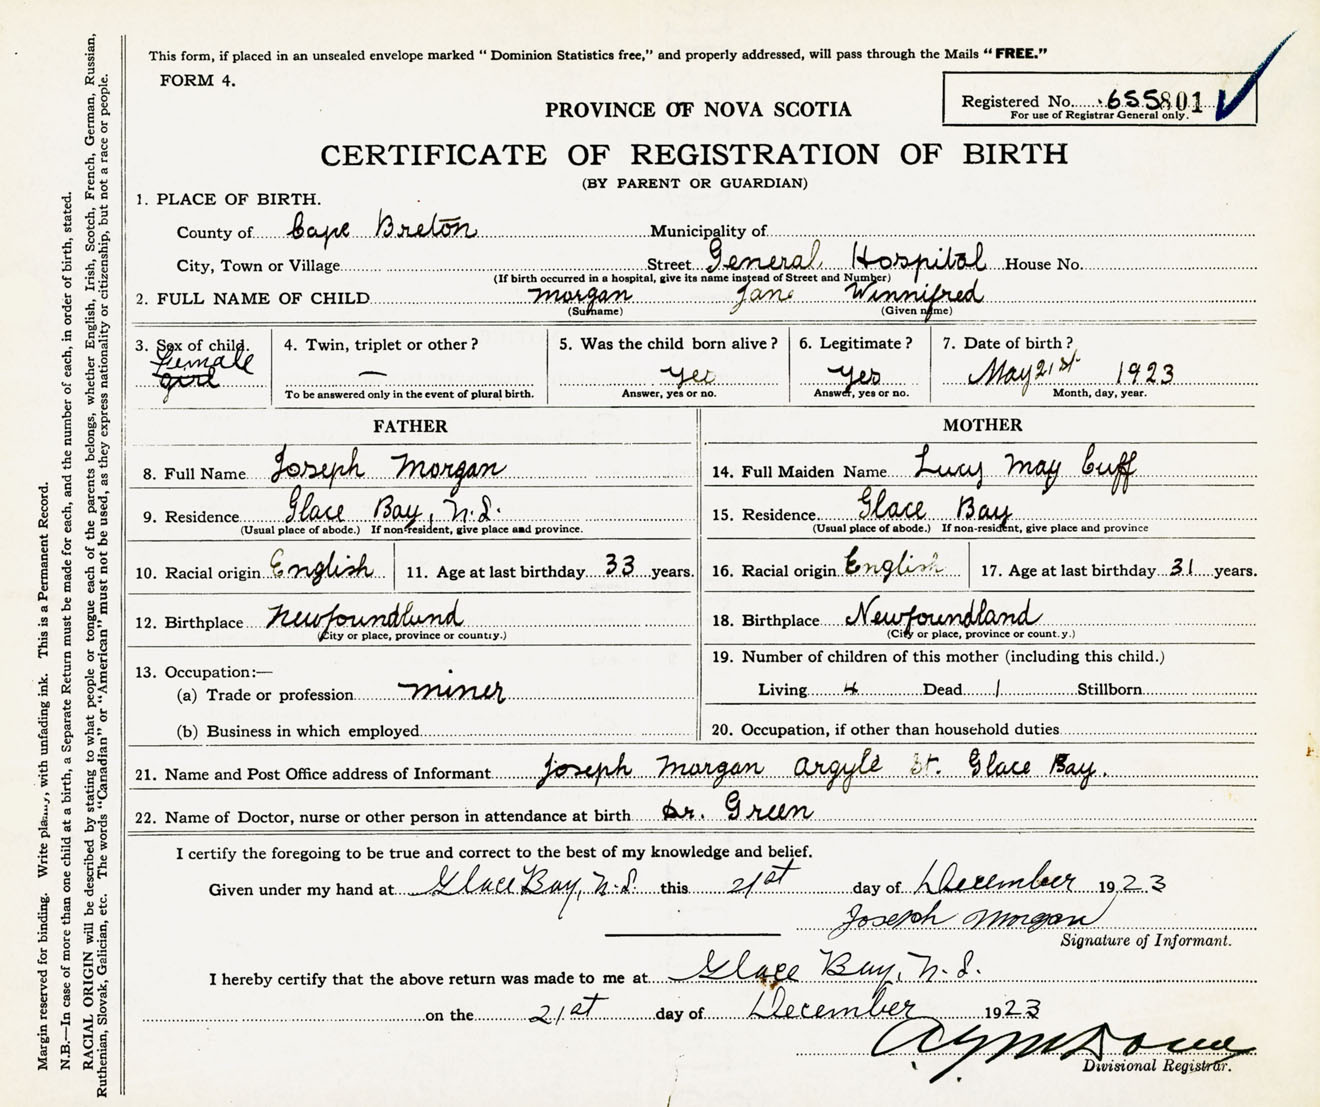 This form, if placed in an unsealed envelope marked “ Dominion Statistics free,” and properly addressed, will pass through the Mails “ FREE.”
FORM 4.
Registered No. 655801
For use of Registrar General only.
PROVINCE OF NOVA SCOTIA
CERTIFICATE OF REGISTRATION OF BIRTH
(BY PARENT OR GUARDIAN)
1. PLACE OF BIRTH.
County of Cape Breton Municipality of
City, Town or Village Street General Hospital House No.
(If birth occurred in a hospital, give its name instead of Street and Number)
2. FULL NAME OF CHILD Morgan Jane Winnifred
(Surname) (Given name)
3. Sex of child. Female girl
4. Twin, triplet or other? —
To be answered only in the event of plural birth.
5. Was the child born alive? yes
Answer, yes or no.
6. Legitimate? Yes
Answer, yes or no.
7. Date of birth? May 21st 1923
Month, day, year.
FATHER
8. Full Name Joseph Morgan
9. Residence Glace Bay, N.S.
(Usual place of abode.) If non-resident, give place and province.
10. Racial origin English 11. Age at last birthday 33 years.
12. Birthplace Newfoundland
(City or place, province or country.)
13. Occupation:—
(a) Trade or profession miner
(b) Business in which employed
MOTHER
14. Full Maiden Name Lucy May Cuff
15. Residence Glace Bay
(Usual place of abode.) If non-resident, give place and province
16. Racial origin English 17. Age at last birthday 31 years.
18. Birthplace Newfoundland
(City or place, province or count.y.)
19. Number of children of this mother (including this child.)
Living 4 Dead 1 Stillborn
20. Occupation, if other than household duties
21. Name and Post Office address of Informant Joseph Morgan Argyle St. Glace Bay.
22. Name of Doctor, nurse or other person in attendance at birth Dr. Green
I certify the foregoing to be true and correct to the best of my knowledge and belief.
Given under my hand at Glace Bay, N.S. this 21st day of December 1923
Joseph Morgan
Signature of Informant.
I hereby certify that the above return was made to me at Glace Bay, N.S.
on the 21st day of December 1923
Divisional Registrar.
Margin reserved for binding. Write plainly, with unfading ink. This is a Permanent Record.
N.B.—In case of more than one child at a birth, a Separate Return must be made for each, and the number of each, in order of birth, stated.
RACIAL ORIGIN will be described by stating to what people or tongue each of the parents belongs, whether English, Irish, Scotch, French, German, Russian,
Ruthenian, Slovak, Galician, etc. The words “Canadian” or “American” must not be used, as they express nationality or citizenship, but not a race or people.